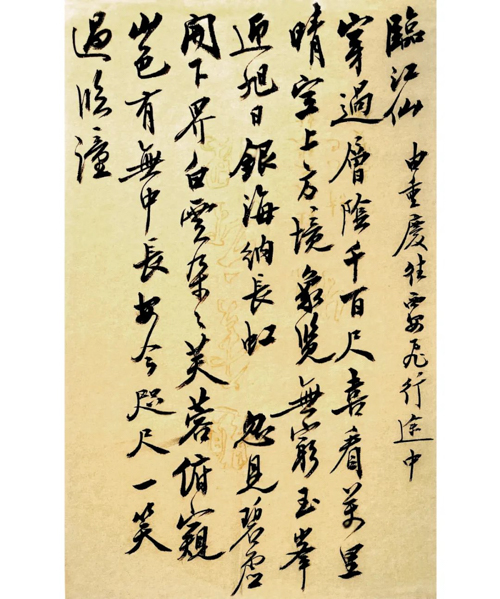 臨江仙 由重慶往西安飛行途中
穿過層陰千百尺喜看萬里
晴空上方境象覽無窮玉峯
迎旭日銀海納長虹 忽見碧虛
開下界白雲朵〻芙蓉俯窺
山色有無中長安今咫尺一笑
過臨潼